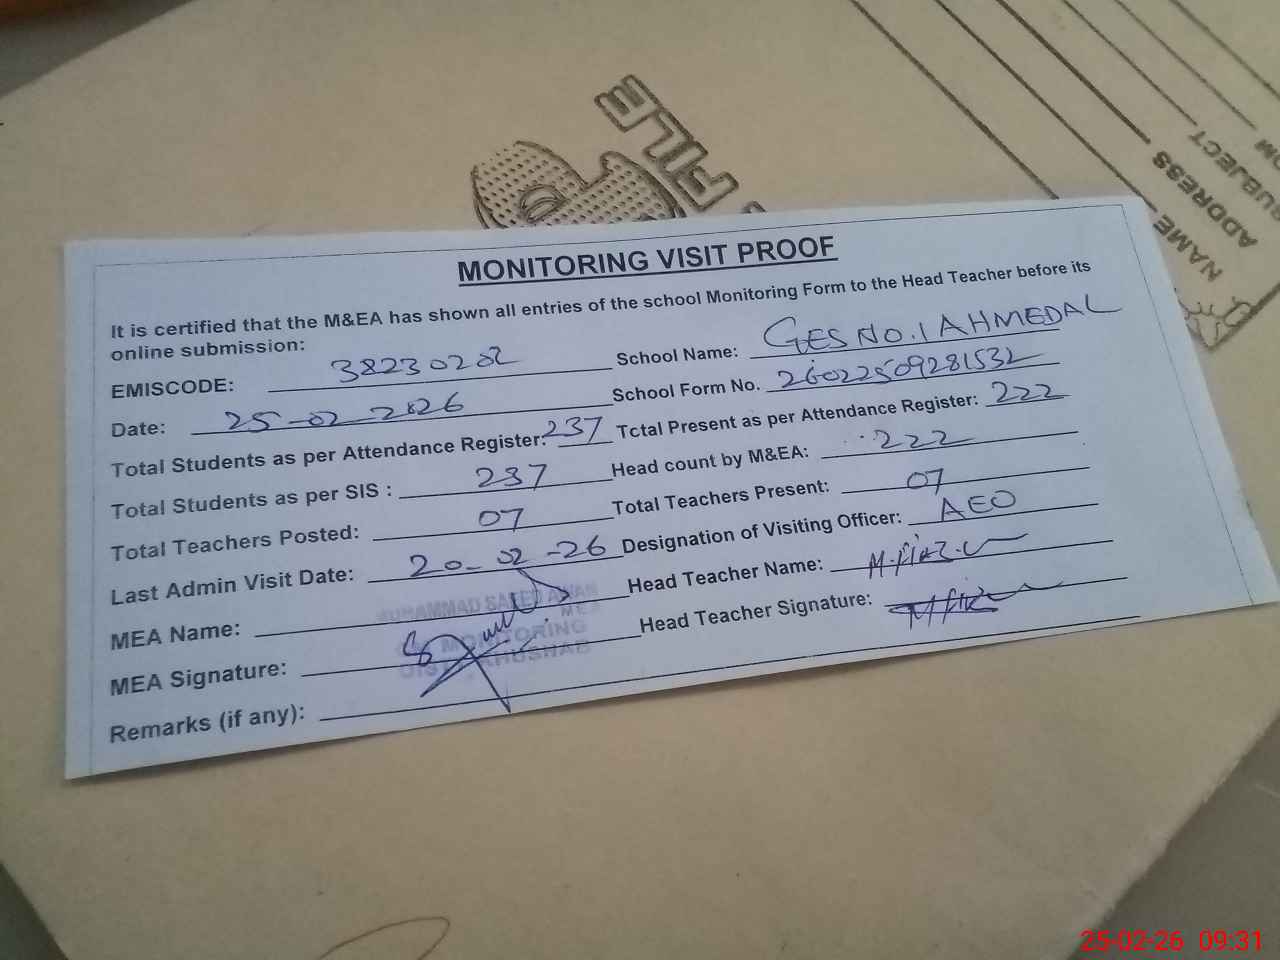 FILE
NAME
ADDRESS
SUBJECT
MONITORING VISIT PROOF
It is certified that the M&EA has shown all entries of the school Monitoring Form to the Head Teacher before its
online submission:
EMISCODE: 38230202 School Name: GES NO.1 AHMEDAL
Date: 25-02-2026 School Form No. 26022509281532
Total Students as per Attendance Register: 237 Total Present as per Attendance Register: 222
Total Students as per SIS : 237 Head count by M&EA: 222
Total Teachers Posted: 07 Total Teachers Present: 07
Last Admin Visit Date: 20-02-26 Designation of Visiting Officer: AEO
MEA Name: MUHAMMAD SAEED AWAN Head Teacher Name:
MEA
MEA Signature: MONITORING Head Teacher Signature:
DISTT. KHUSHAB
Remarks (if any):
25-02-26 09:31